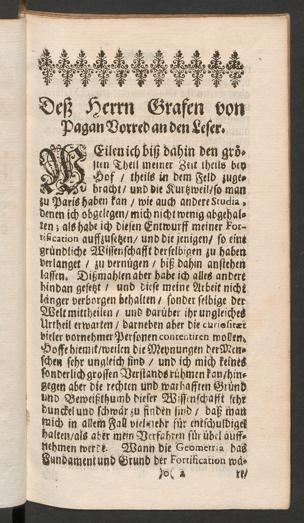 Deß Herrn Grafen von
Pagan Vorred an den Leser.
WEilen ich biß dahin den grö-
sten Theil meiner Zeit theils bey
Hof / theils in dem Feld zuge-
bracht / und die Kurtzweil / so man
zu Paris haben kan / wie auch andere Studia,
denen ich obgelegen / mich nicht wenig abgehal-
ten; als habe ich diesen Entwurff meiner For-
tification auffzusetzen / und die jenigen / so eine
gründliche Wissenschafft derselbigen zu haben
verlanget / zu vernügen / biß dahin anstehen
lassen. Dißmahlen aber habe ich alles andere
hindan gesetzt / und diese meine Arbeit nicht
länger verborgen behalten / sonder selbige der
Welt mittheilen / und darüber ihr ungleiches
Urtheil erwarten / darneben aber die curiositæt
vieler vornehmer Personen contentiren wollen.
Hoffe hiemit / weilen die Meynungen der Men-
schen sehr ungleich sind / und ich mich keines
sonderlich grossen Verstands rühmen kan / hin-
gegen aber die rechten und warhafften Gründ
und Beweißthumb dieser Wissenschafft sehr
dunckel und schwär zu finden sind / daß man
mich in allem Fall vielmehr für entschuldiget
halten / als aber mein Verfahren für übel auff-
nehmen werde. Wann die Geometria das
Fundament und Grund der Fortification wä-
)o( 2 re/